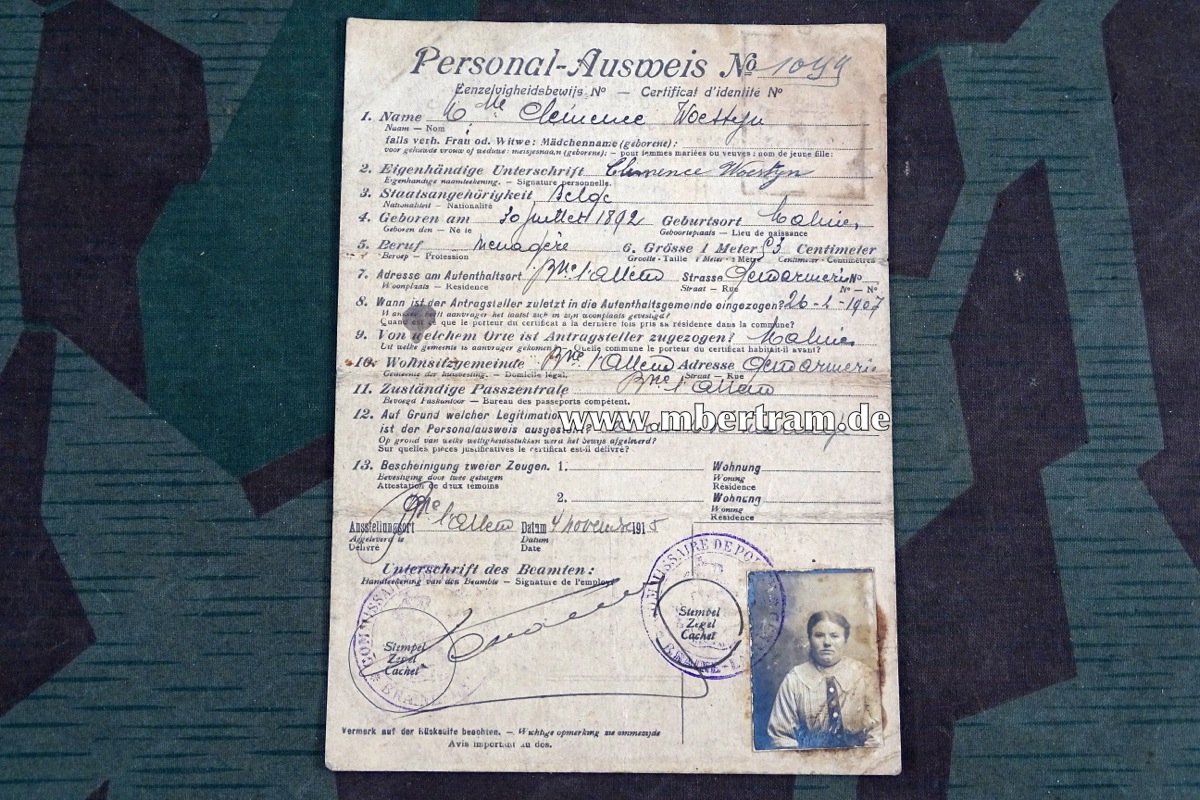 Personal-Ausweis № 1099
Eenzelvigheidsbewijs Nº — Certificat d'identité Nº
1. Name Mlle Clémence Woestyn
Naam — Nom
falls verh. Frau od. Witwe: Mädchenname (geborene):
voor gehuwde vrouw of weduwe: meisjesnaam (geborene): — pour femmes mariées ou veuves: nom de jeune fille:
2. Eigenhändige Unterschrift Clemence Woestyn
Eigenhandige naamteekening. — Signature personnelle.
3. Staatsangehörigkeit Belge
Nationaliteit — Nationalité
4. Geboren am 30 juillet 1892 Geburtsort Malines
Geboren den — Né le Geboorteplaats — Lieu de naissance
5. Beruf Menagère 6. Grösse 1 Meter 53 Centimeter
Beroep — Profession Grootte - Taille 1 Meter - 1 Mètre Centimeter - Centimètres
7. Adresse am Aufenthaltsort Bne l'alleud Strasse Gendarmerie No
Woonplaats — Residence Straat — Rue Nº — Nº
8. Wann ist der Antragsteller zuletzt in die Aufenthaltsgemeinde eingezogen? 26-2-1907
Wanneer heeft aanvrager het laatst zich in zijn woonplaats gevestigd?
Quand est-ce que le porteur du certificat a la dernière fois pris sa résidence dans la commune?
9. Von welchem Orte ist Antragsteller zugezogen? Malines
Uit welke gemeente is aanvrager gekomen? — Quelle commune le porteur du certificat habitait-il avant?
10. Wohnsitzgemeinde Bne l'alleud Adresse Gendarmerie
Gemeente der huisvesting. — Domicile légal. Straat — Rue
11. Zuständige Passzentrale Bne l'alleud
Bevoegd Paskantoor — Bureau des passeports compétent.
12. Auf Grund welcher Legitimation
ist der Personalausweis ausgestellt?
www.mbertram.de
Op grond van welke wettigheidsstukken werd het bewijs afgeleverd?
Sur quelles pièces justificatives le certificat est-il délivré?
13. Bescheinigung zweier Zeugen. 1. Wohnung
Bevestiging door twee getuigen Woning
Attestation de deux témoins Résidence
2. Wohnung
Woning
Résidence
Ausstellungsort Bne l'alleud Datum 4 novembre 1915
Afgeleverd te Datum
Délivré Date
Unterschrift des Beamten:
Handteekening van den Beambte — Signature de l'employé
COMMISSAIRE DE POLICE
BRAINE-L
Stempel
Zegel
Cachet
COMMISSAIRE
BRAINE
Stempel
Zegel
Cachet
Vermerk auf der Rückseite beachten. — Wichtige opmerking zie ommezijde
Avis important au dos.